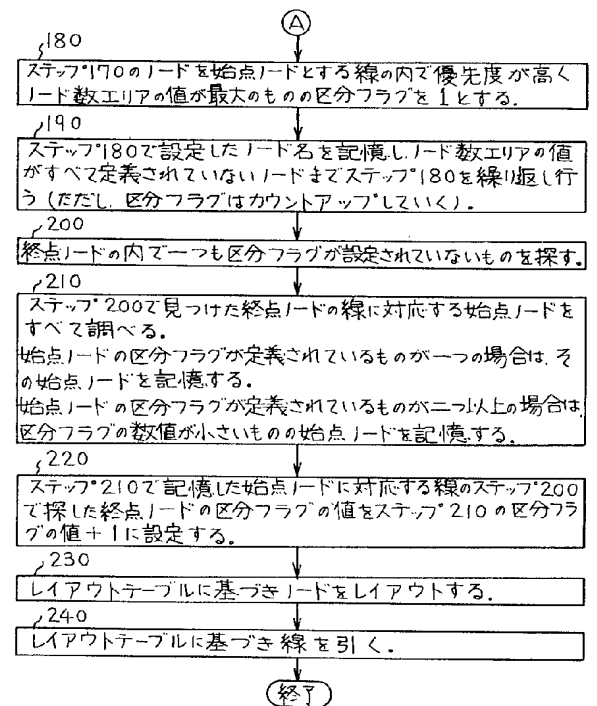 A
180
ステップ170のノードを始点ノードとする線の内で優先度が高く
ノード数エリアの値が最大のものの区分フラグを1とする.
190
ステップ180で設定したノード名を記憶しノード数エリアの値
がすべて定義されていないノードまでステップ180を繰り返し行
う(ただし区分フラグはカウントアップしていく).
200
終点ノードの内で一つも区分フラグが設定されていないものを探す。
210
ステップ200で見つけた終点ノードの線に対応する始点ノードを
すべて調べる。
始点ノードの区分フラグが定義されているものが一つの場合は,そ
の始点ノードを記憶する。
始点ノードの区分フラグが定義されているものが二つ以上の場合は,
区分フラグの数値が小さいものの始点ノードを記憶する。
220
ステップ210で記憶した始点ノードに対応する線のステップ200
で探した終点ノードの区分フラグの値をステップ210の区分フラ
グの値+1に設定する。
230
レイアウトテーブルに基づきノードをレイアウトする.
240
レイアウトテーブルに基づき線を引く.
終了